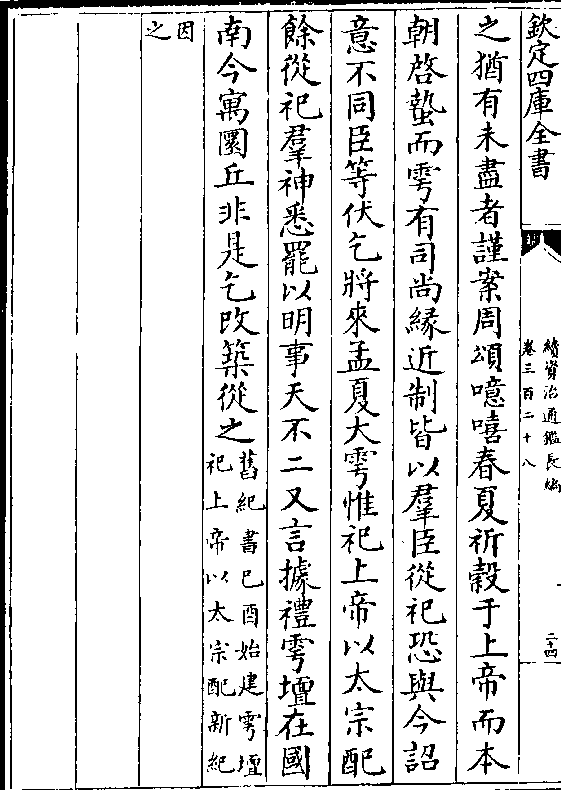 欽定四庫全書
續資治通鑑長編
卷三百二十八
二十四
之猶有未盡者謹案周頌噫嘻春夏祈穀于上帝而本
朝啓蟄而雩有司尚緣近制皆以羣臣從祀恐與今詔
意不同臣等伏乞將來孟夏大雩惟祀上帝以太宗配
餘從祀羣神悉罷以明事天不二又言據禮雩壇在國
南今寓圜丘非是乞改築從之
舊紀書己酉始建雩壇
祀上帝以太宗配新紀
因
之